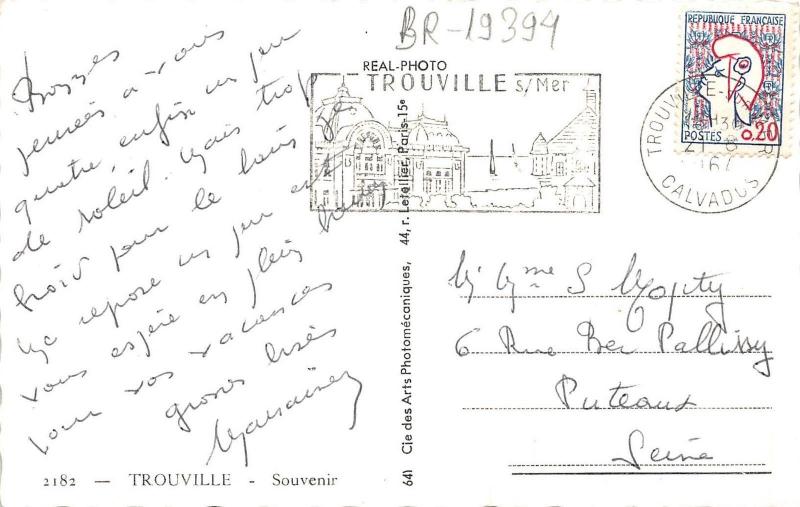 BR-19394
REPUBLIQUE FRANÇAISE
POSTES 0,20
REAL-PHOTO
TROUVILLE s/Mer
TROUVILLE
CALVADOS
Bonnes
pensées a vous
quatre, enfin un peu
de soleil. Mais trop
froid pour le bain. Je
me repose un peu et
vous espère en pleine
pour vos vacances
grosses bises
44, r. Letellier, Paris-15e
641 Cie des Arts Photomécaniques,
Mr Mme S
6 Rue Ber Pallissy
Puteaux
Seine
2182 — TROUVILLE - Souvenir